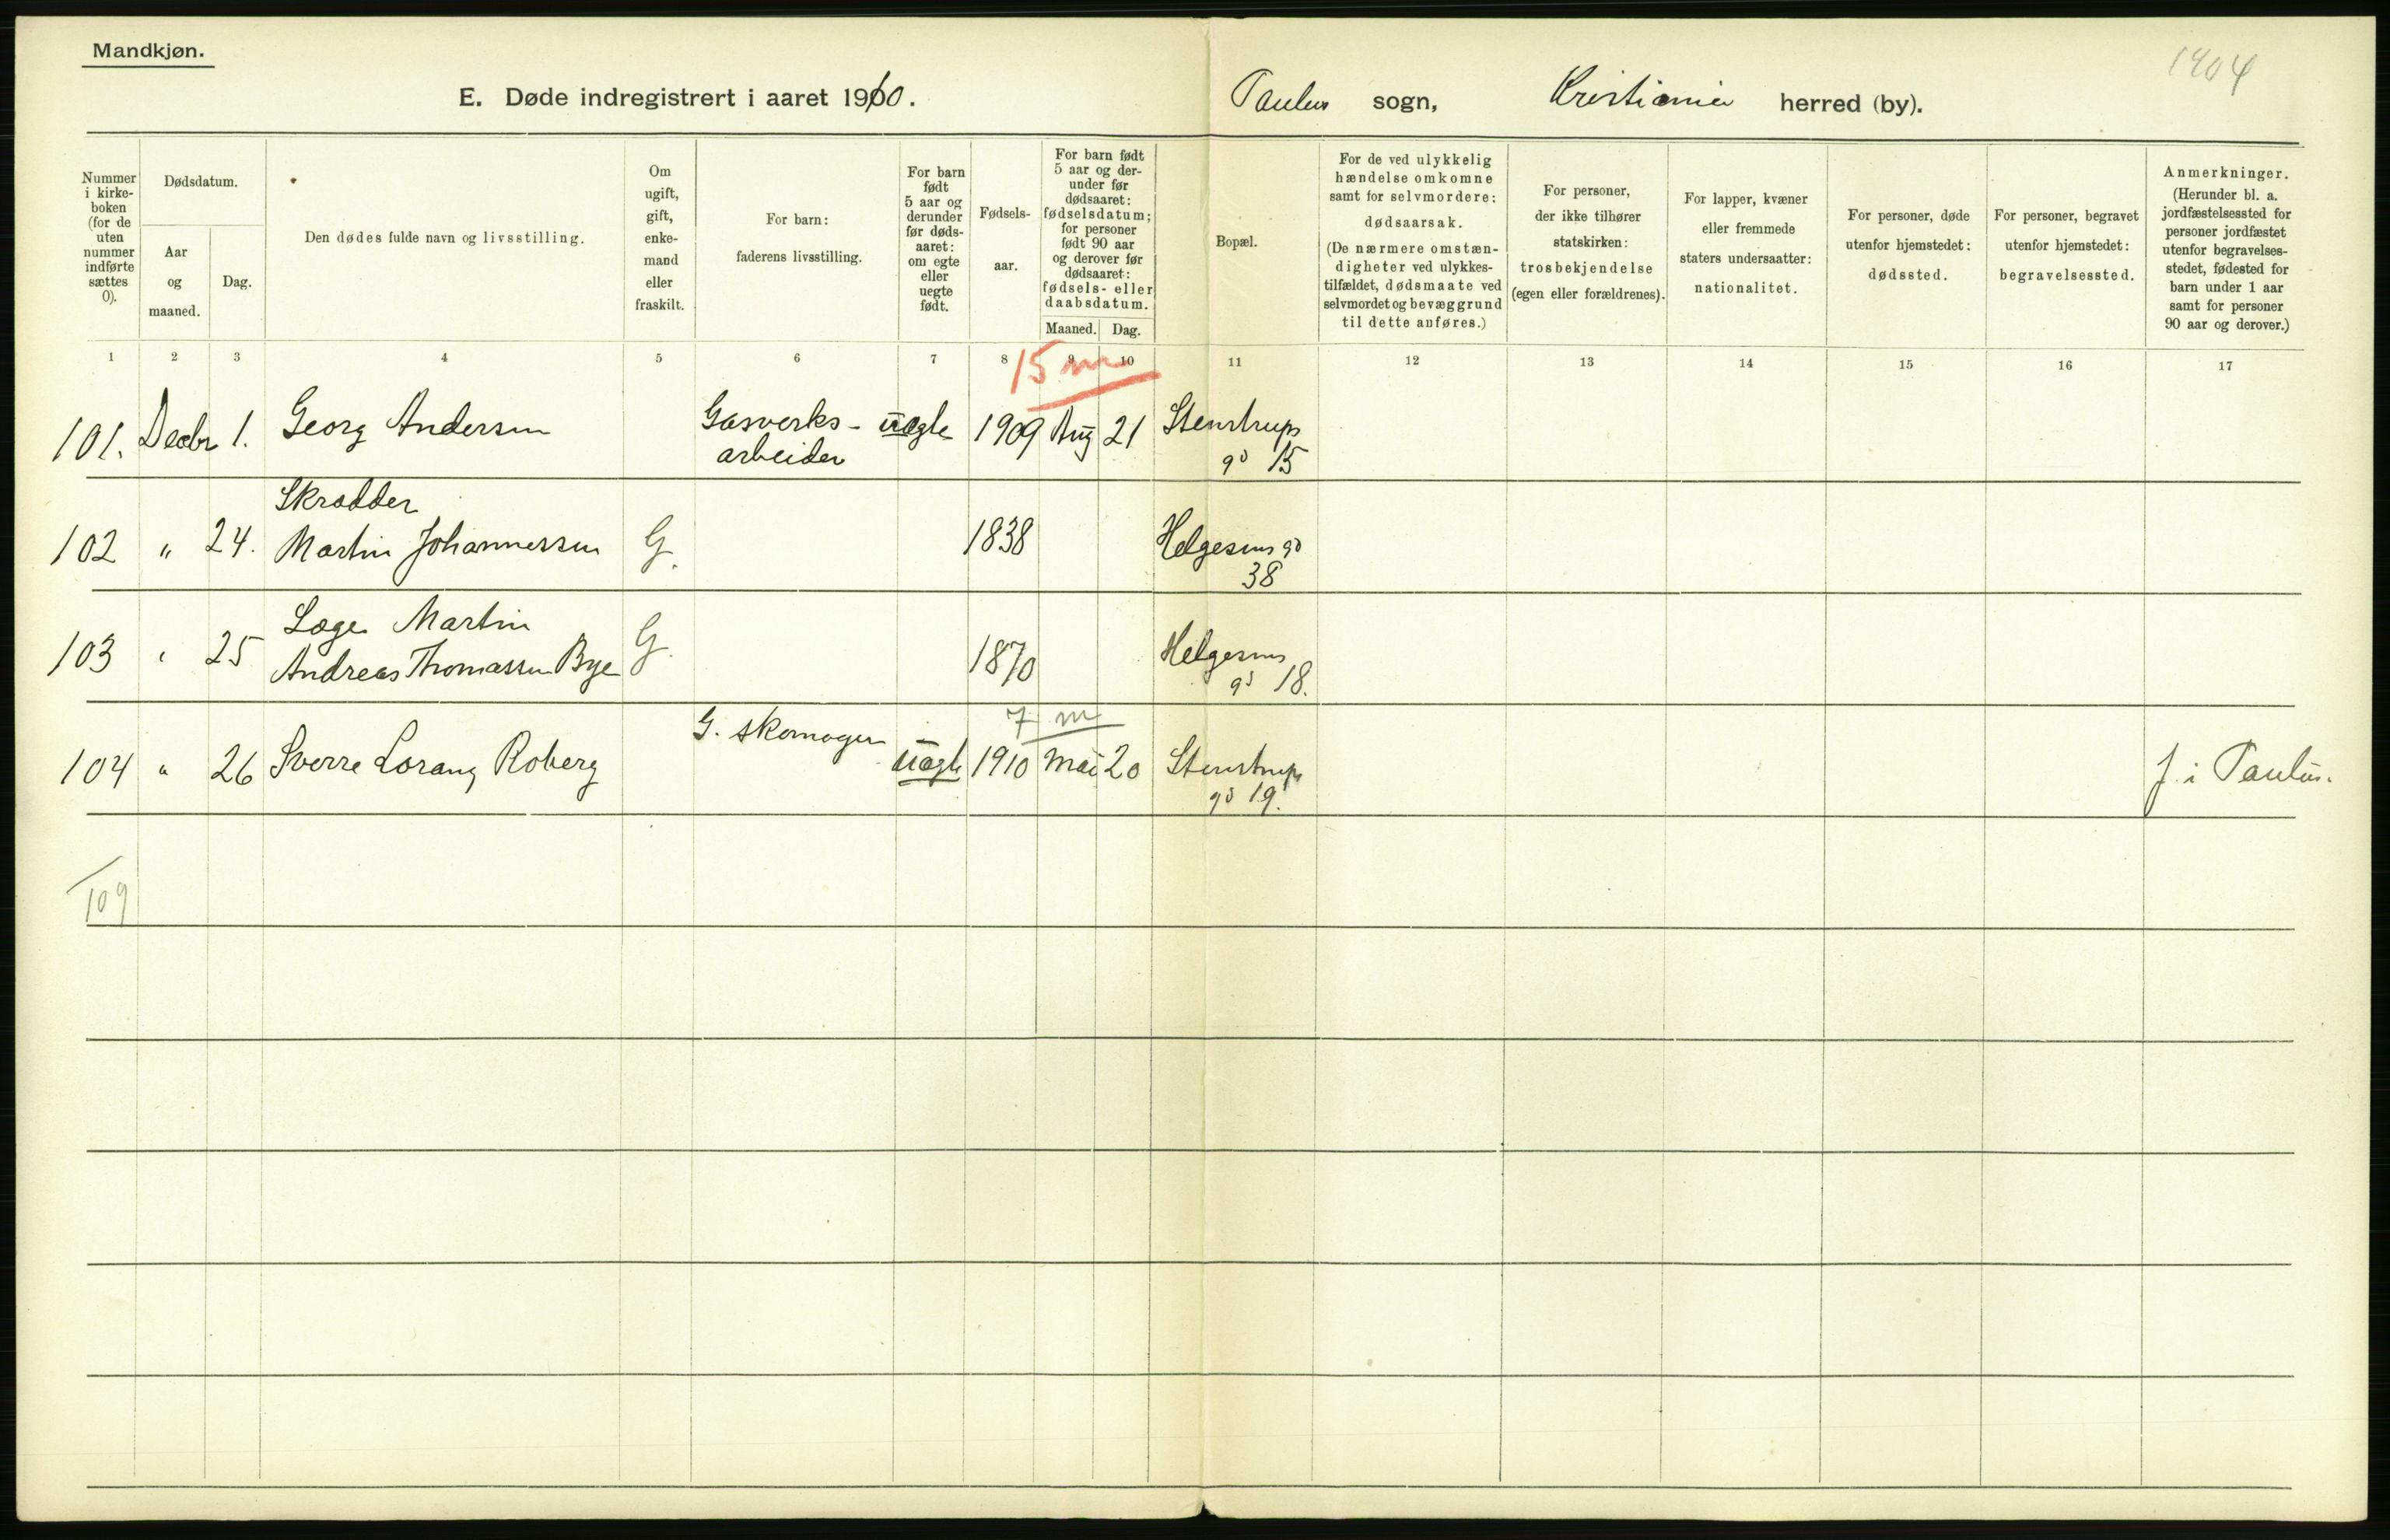 Mandkjøn.
1404
E. Døde indregistrert i aaret 1910.
Paulus sogn, Kristiania herred (by).
Nummer i kirke- boken (for de uten nummer indførte sættes 0).
Dødsdatum.
Aar og maaned.
Dag.
Den dødes fulde navn og livsstilling.
Om ugift, gift, enke- mand eller fraskilt.
For barn: faderens livsstilling.
For barn født 5 aar og derunder før døds- aaret: om egte eller uegte født.
Fødsels- aar.
For barn født 5 aar og der- under før dødsaaret: fødselsdatum; for personer født 90 aar og derover før dødsaaret: fødsels- eller daabsdatum.
Maaned. Dag.
Bopæl.
For de ved ulykkelig hændelse omkomne samt for selvmordere: dødsaarsak. (De nærmere omstæn- digheter ved ulykkes- tilfældet, dødsmaate ved selvmordet og bevæggrund til dette anføres.)
For personer, der ikke tilhører statskirken: trosbekjendelse (egen eller forældrenes).
For lapper, kvæner eller fremmede staters undersaatter: nationalitet.
For personer, døde utenfor hjemstedet: dødssted.
For personer, begravet utenfor hjemstedet: begravelsessted.
Anmerkninger. (Herunder bl. a. jordfæstelsessted for personer jordfæstet utenfor begravelses- stedet, fødested for barn under 1 aar samt for personer 90 aar og derover.)
1 2 3 4 5 6 7 8 9 10 11 12 13 14 15 16 17
15 m
101. Decbr 1. Georg Andersen Gasverks- uægte 1909 Aug 21 Stenstrups
arbeider gd 15
Skrædder
102 " 24. Martin Johannessen G. 1838 Helgesens gd
38
Læge Martin
103 " 25 Andreas Thomassen Bye G. 1870 Helgesens
gd 18.
G. skomager 7 m
104 " 26 Sverre Lorang Roberg uægte 1910 Mai 20 Stenstrups f. i Paulus.
gd 19.
109